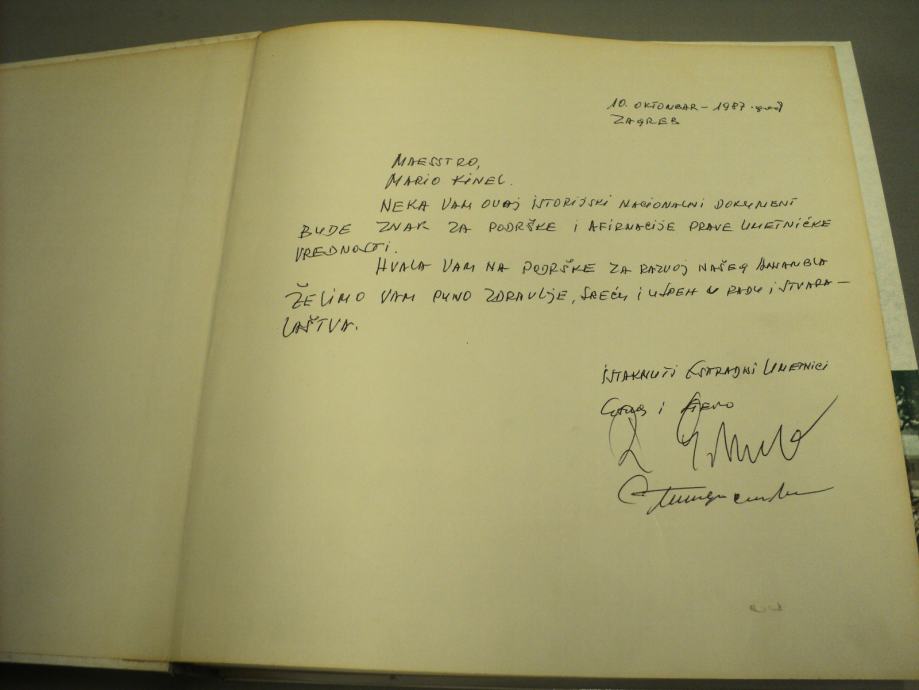 10. OKTONBAR - 1987. god
ZAGREB
MAESSTRO,
MARIO KINEL.
NEKA VAM OVAJ ISTORIJSKI NACIONALNI DOKUMENT
BUDE ZNAK ZA PODRŠKE I AFIRNACIJE PRAVE UMETNIČKE
VREDNOSTI.
HVALA VAM NA PODRŠKE ZA RAZVOJ NAŠEG ANHANBLA
ŽELIMO VAM PUNO ZDRAVLJE, SREĆU I USPEH U RADU I STVARA-
LAŠTVA.
ISTAKNUTI ESTRADNI UMETNICI
i